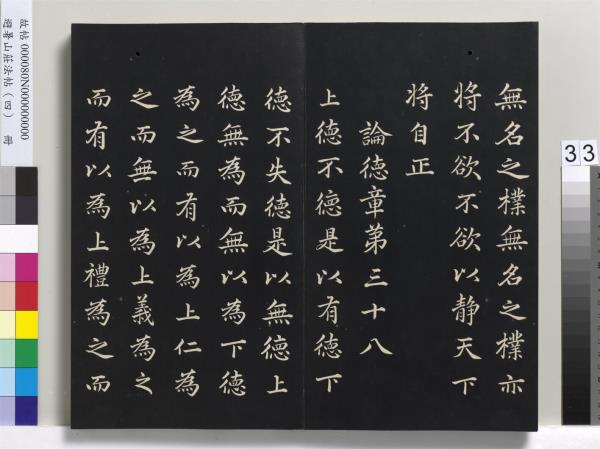 無名之樸無名之樸亦
將不欲不欲以静天下
將自正
論德章第三十八
上德不德是以有德下
德不失德是以無德上
德無為而無以為下德
為之而有以為上仁為
之而無以為上義為之
而有以為上禮為之而
故帖 000080N000000000
避暑山莊法帖（四） 冊
33